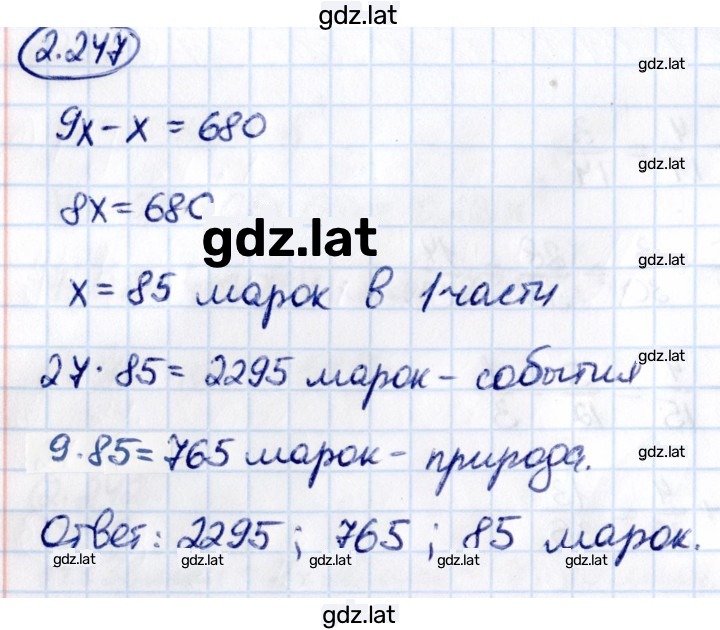 gdz.lat
2.247
gdz.lat
9x - x = 680
gdz.lat
8x = 680
gdz.lat
gdz.lat
x = 85 марок в 1 части
gdz.lat
27 · 85 = 2295 марок - события
9 · 85 = 765 марок - природа.
gdz.lat
Ответ: 2295 ; 765 ; 85 марок.
gdz.lat gdz.lat gdz.lat gdz.lat gdz.lat
gdz.lat